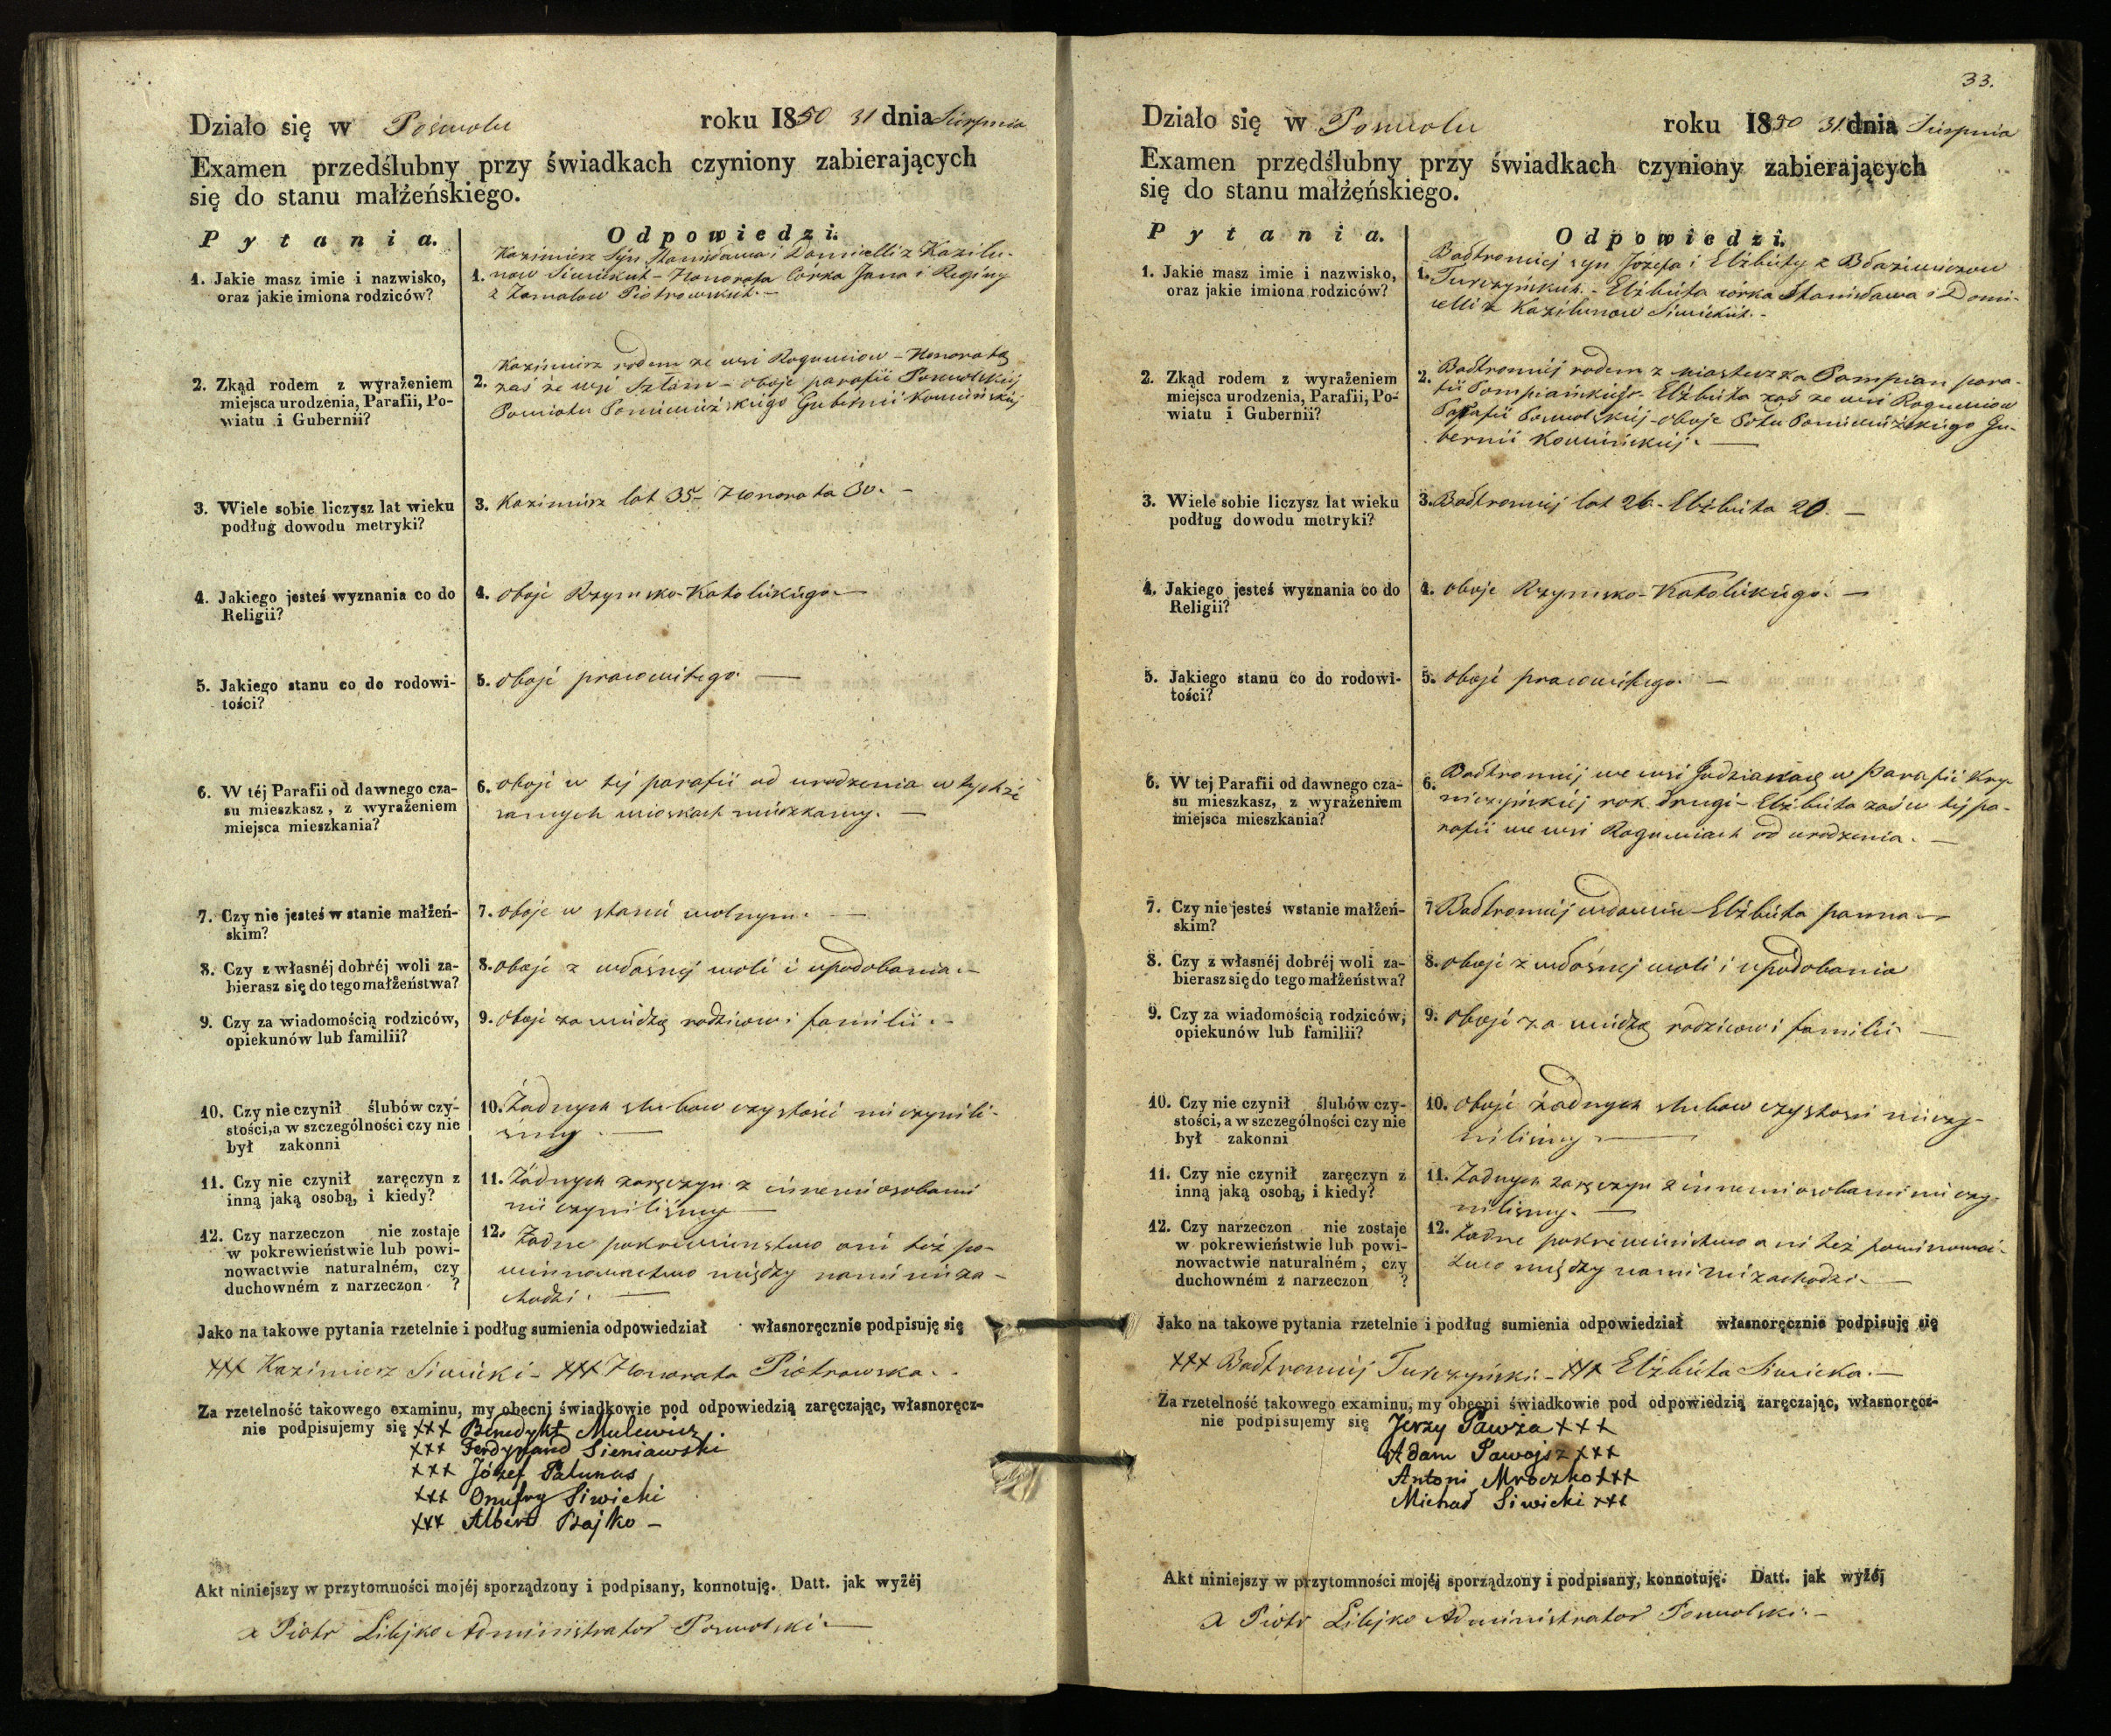 Działo się w Poswolu roku 1850 31 dnia Sierpnia
Examen przedślubny przy świadkach czyniony zabierających
się do stanu małżeńskiego.
Pytania. Odpowiedzi.
1. Jakie masz imie i nazwisko,
oraz jakie imiona rodziców?
Kazimierz Syn Stanisława i Danielli z Kazilu-
1. now Siwickich - Honorata Córka Jana i Reginy
z Piotrowskich. -
2. Zkąd rodem z wyrażeniem
miejsca urodzenia, Parafii, Po-
wiatu i Gubernii?
Kazimierz rodem ze wsi Roguwiow - Honorata
2. zaś ze wsi - oboje parafii Poswolskiej
Powiatu Poniewieżskiego Gubernii Kowieńskiej
3. Wiele sobie liczysz lat wieku
podług dowodu metryki?
3. Kazimierz lat 35 - Honorata 30. -
4. Jakiego jesteś wyznania co do
Religii?
4. oboje Rzymsko-Katolickiego -
5. Jakiego stanu co do rodowi-
tości?
5. oboje prawowitego. -
6. W téj Parafii od dawnego cza-
su mieszkasz, z wyrażeniem
miejsca mieszkania?
6. oboje w tej parafii od urodzenia w tychże
samych wioskach mieszkamy. -
7. Czy nie jesteś w stanie małżeń-
skim?
7. oboje w stanie wolnym. -
8. Czy z własnéj dobréj woli za-
bierasz się do tego małżeństwa?
8. oboje z własnej woli i upodobania. -
9. Czy za wiadomością rodziców,
opiekunów lub familii?
9. oboje za wiedzą rodzicow i familii. -
10. Czy nie czynił ślubów czy-
stości, a w szczególności czy nie
był zakonni
10. Żadnych slubow czystości nie czynili-
śmy. -
11. Czy nie czynił zaręczyn z
inną jaką osobą, i kiedy?
11. Żadnych zaręczyn z innemi osobami
nie czyniliśmy -
12. Czy narzeczon nie zostaje
w pokrewieństwie lub powi-
nowactwie naturalném, czy
duchowném z narzeczon ?
12. Żadne pokrewienstwo ani też po-
winnowactwo między nami nie za-
chodzi. -
Jako na takowe pytania rzetelnie i podług sumienia odpowiedział własnoręcznie podpisuję się
xxx Kazimierz Siwicki - xxx Honorata Piotrowska. -
Za rzetelność takowego examinu, my obecni świadkowie pod odpowiedzią zaręczając, własnoręcz-
nie podpisujemy się xxx Benedykt Mulewicz.
xxx Ferdynand Sieniawski
xxx Józef Palunas
xxx Onufry Siwicki
xxx Albert Bajko -
Akt niniejszy w przytomności mojéj sporządzony i podpisany, konnotuję. Datt. jak wyżéj
X Piotr Libejko Administrator Poswolski -
33.
Działo się w Poswolu roku 1850 31. dnia Sierpnia
Examen przedślubny przy świadkach czyniony zabierających
się do stanu małżeńskiego.
Pytania. Odpowiedzi.
1. Jakie masz imie i nazwisko,
oraz jakie imiona rodziców?
Bałtromiej syn Józefa i Elżbiety z Błażewiczow
1. Turczyńskich. - Elżbieta córka Stanisława i Dani-
elli z Kazilunow Siwickich. -
2. Zkąd rodem z wyrażeniem
miejsca urodzenia, Parafii, Po-
wiatu i Gubernii?
2. Bałtromiej rodem z miasteczka Pompian para-
fii Pompiańskiej - Elżbieta zaś ze wsi Roguwiow
Parafii Poswolskiej - oboje Pottu Poniewieżskiego Gu-
bernii Kowieńskiej. -
3. Wiele sobie liczysz lat wieku
podług dowodu metryki?
3. Bałtromiej lat 26 - Elżbieta 20. -
4. Jakiego jesteś wyznania co do
Religii?
4. oboje Rzymsko-Katolickiego. -
5. Jakiego stanu co do rodowi-
tości?
5. oboje prawowitego. -
6. W tej Parafii od dawnego cza-
su mieszkasz, z wyrażeniem
miejsca mieszkania?
6. Bałtromiej we wsi w Parafii Kry-
niczyńskiej rok drugi - Elżbieta zaś w tej pa-
rafii we wsi Roguwiach od urodzenia. -
7. Czy nie jesteś wstanie małżeń-
skim?
7. Bałtromiej wdowiec Elżbieta panna -
8. Czy z własnéj dobréj woli za-
bierasz się do tego małżeństwa?
8. oboje z własnej woli i upodobania
9. Czy za wiadomością rodziców,
opiekunów lub familii?
9. oboje za wiedzą rodzicow i familii -
10. Czy nie czynił ślubów czy-
stości, a w szczególności czy nie
był zakonni
10. oboje żadnych slubow czystosci nie czy-
nilismy -
11. Czy nie czynił zaręczyn z
inną jaką osobą, i kiedy?
11. Żadnych zaręczyn z innemi osobami nie czy-
nilismy. -
12. Czy narzeczon nie zostaje
w pokrewieństwie lub powi-
nowactwie naturalném, czy
duchowném z narzeczon ?
12. Żadne pokrewieństwo ani też powinowac-
two między nami nie zachodzi. -
Jako na takowe pytania rzetelnie i podług sumienia odpowiedział własnoręcznie podpisuję się
xxx Bałtromiej Turczyński - xxx Elżbieta Siwicka. -
Za rzetelność takowego examinu, my obecni świadkowie pod odpowiedzią zaręczając, własnoręcz-
nie podpisujemy się Jerzy Pawża xxx
Adam Pawojsz xxx
Antoni Mroczko xxx
Michał Siwicki xxx
Akt niniejszy w przytomności mojéj sporządzony i podpisany, konnotuję. Datt. jak wyżéj
X Piotr Libejko Administrator Poswolski. -